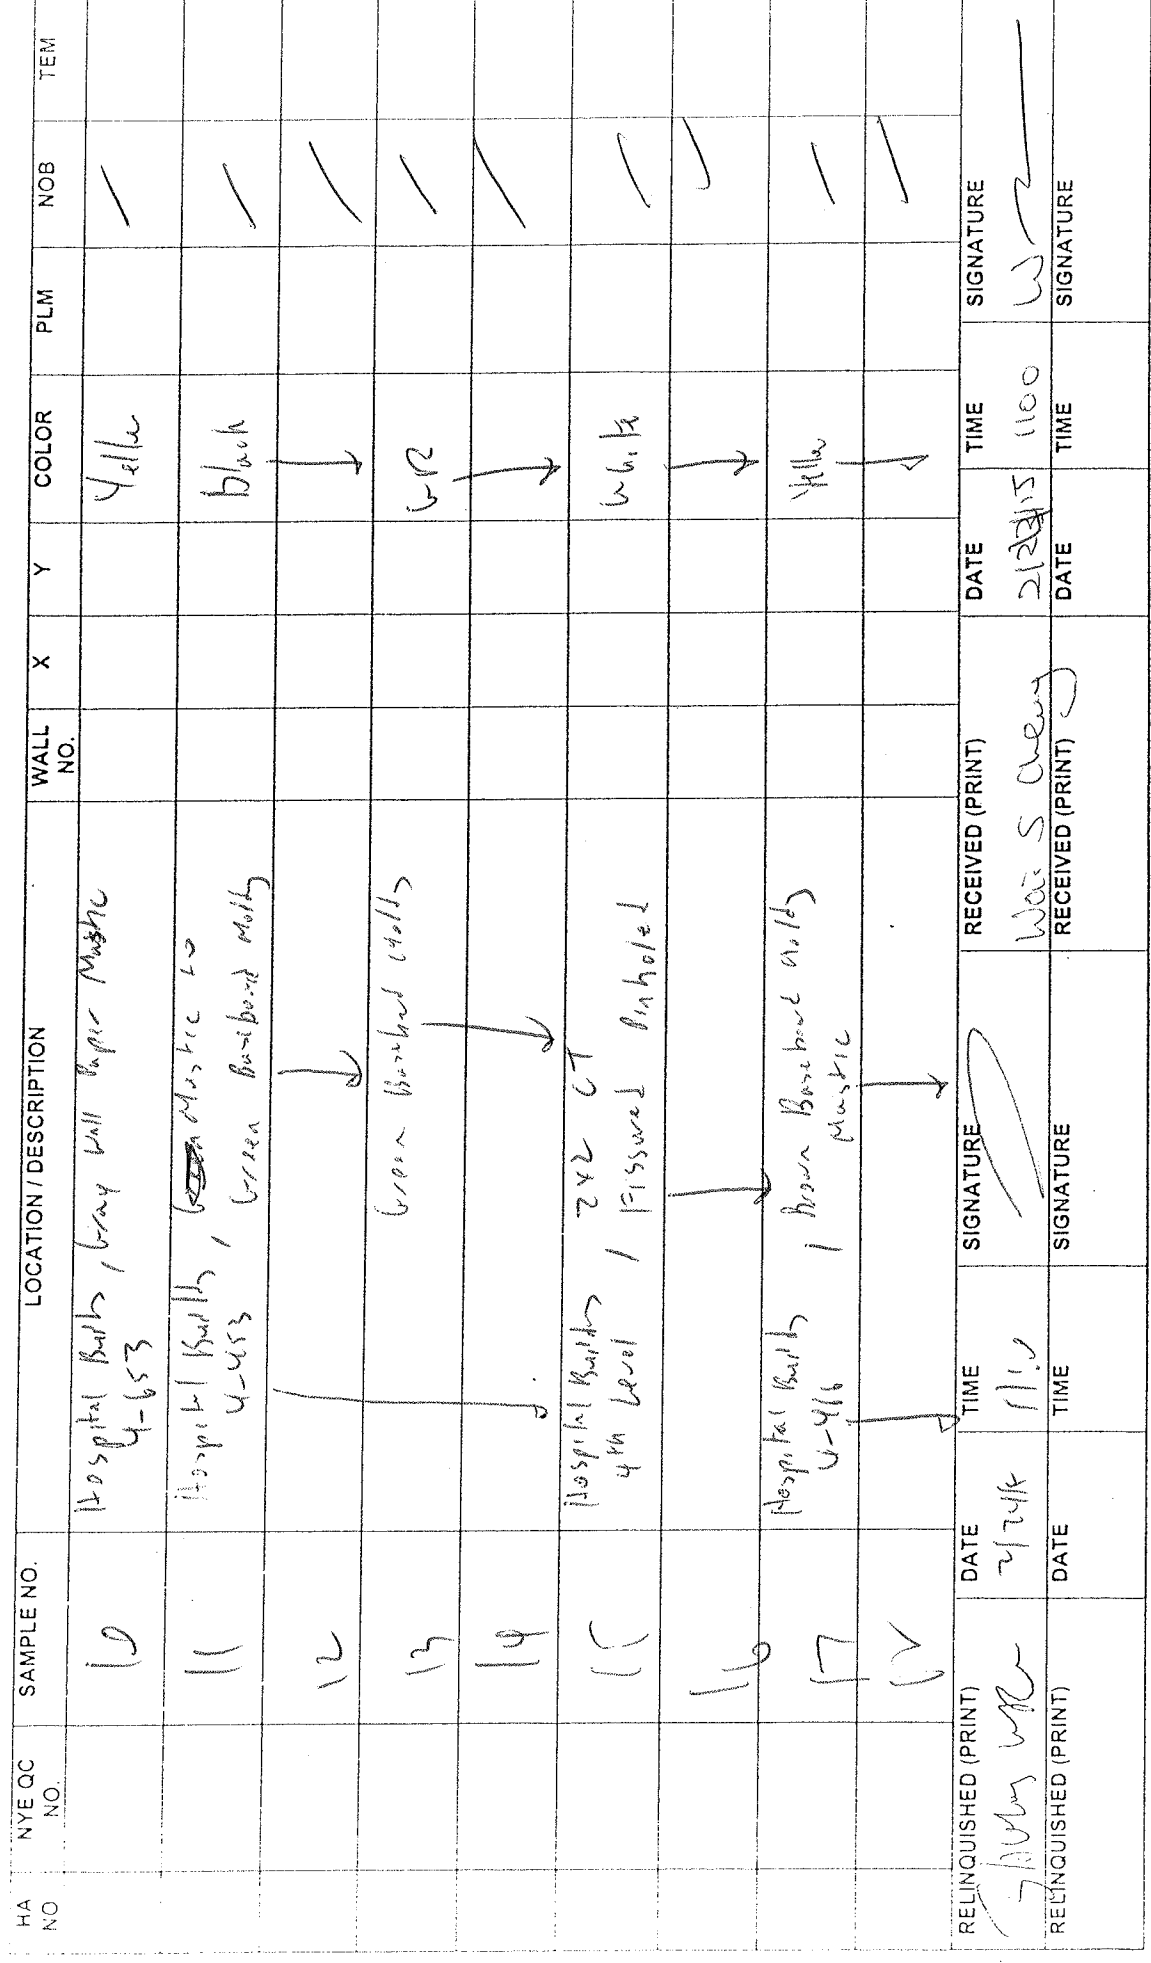 HA NO NYE QC NO. SAMPLE NO. LOCATION / DESCRIPTION WALL NO. X Y COLOR PLM NOB TEM
10 Hospital Buildg, Gray Wall Paper Mastic Yellow /
4-653
11 Hospital Buildg, Mastic to black /
4-453, Green Baseboard Moldg
12 /
13 Green Baseboard Moldg GR /
14 /
15 Hospital Buildg, 2x2 CT White /
4th Level, Fissured Pinholed
16 /
17 Hospital Buildg, Brown Baseboard Moldg Yellow /
4-416 Mastic
18 /
RELINQUISHED (PRINT) DATE TIME SIGNATURE RECEIVED (PRINT) DATE TIME SIGNATURE
Wai S 1100
RELINQUISHED (PRINT) DATE TIME SIGNATURE RECEIVED (PRINT) DATE TIME SIGNATURE